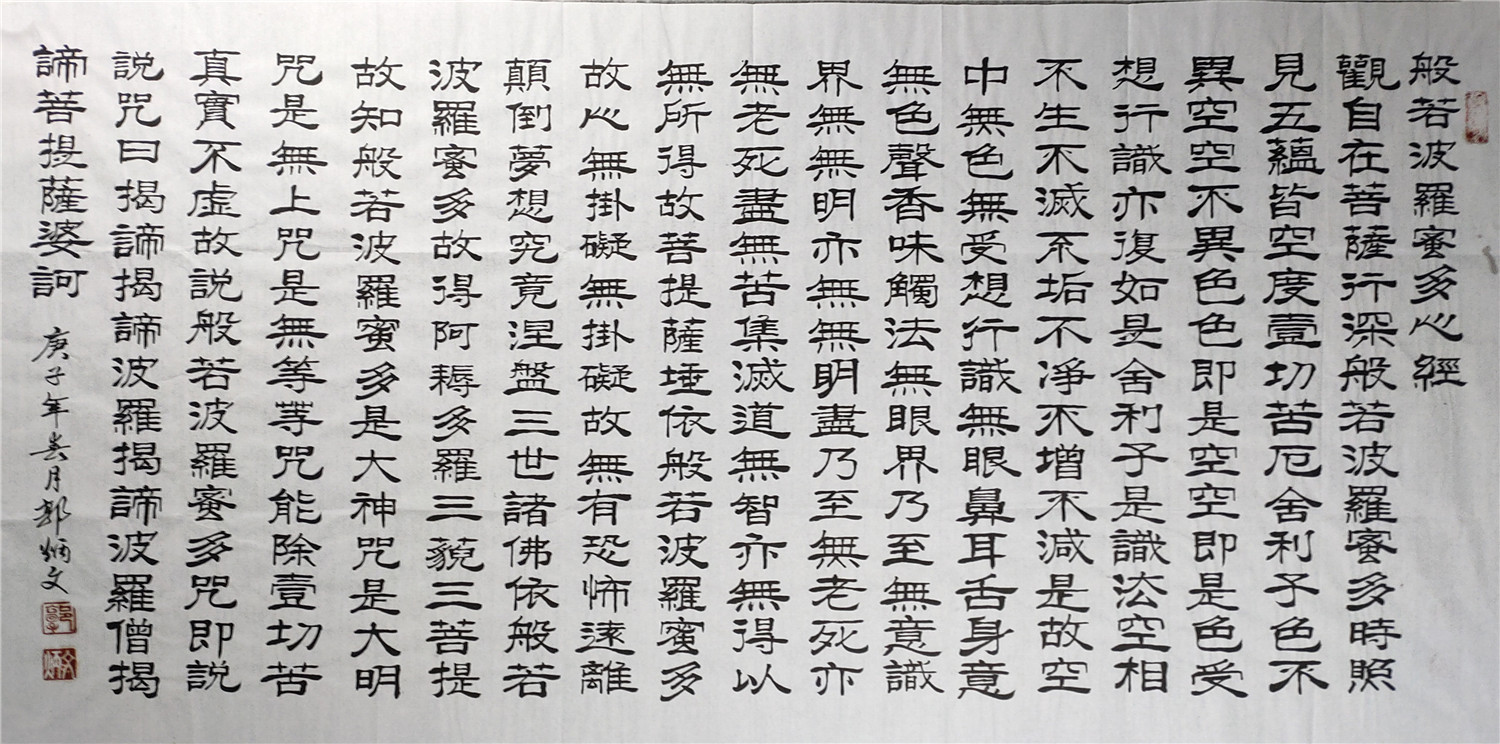 般若波羅蜜多心經
觀自在菩薩行深般若波羅蜜多時照
見五蘊皆空度壹切苦厄舍利子色不
異空空不異色色即是空空即是色受
想行識亦復如是舍利子是識法空相
不生不滅不垢不淨不增不減是故空
中無色無受想行識無眼鼻耳舌身意
無色聲香味觸法無眼界乃至無意識
界無無明亦無無明盡乃至無老死亦
無老死盡無苦集滅道無智亦無得以
無所得故菩提薩埵依般若波羅蜜多
故心無掛礙無掛礙故無有恐怖遠離
顛倒夢想究竟涅盤三世諸佛依般若
波羅蜜多故得阿耨多羅三藐三菩提
故知般若波羅蜜多是大神咒是大明
咒是無上咒是無等等咒能除壹切苦
真實不虛故説般若波羅蜜多咒即説
説咒曰揭諦揭諦波羅揭諦波羅僧揭
諦菩提薩婆訶
庚子年春月郭炳文